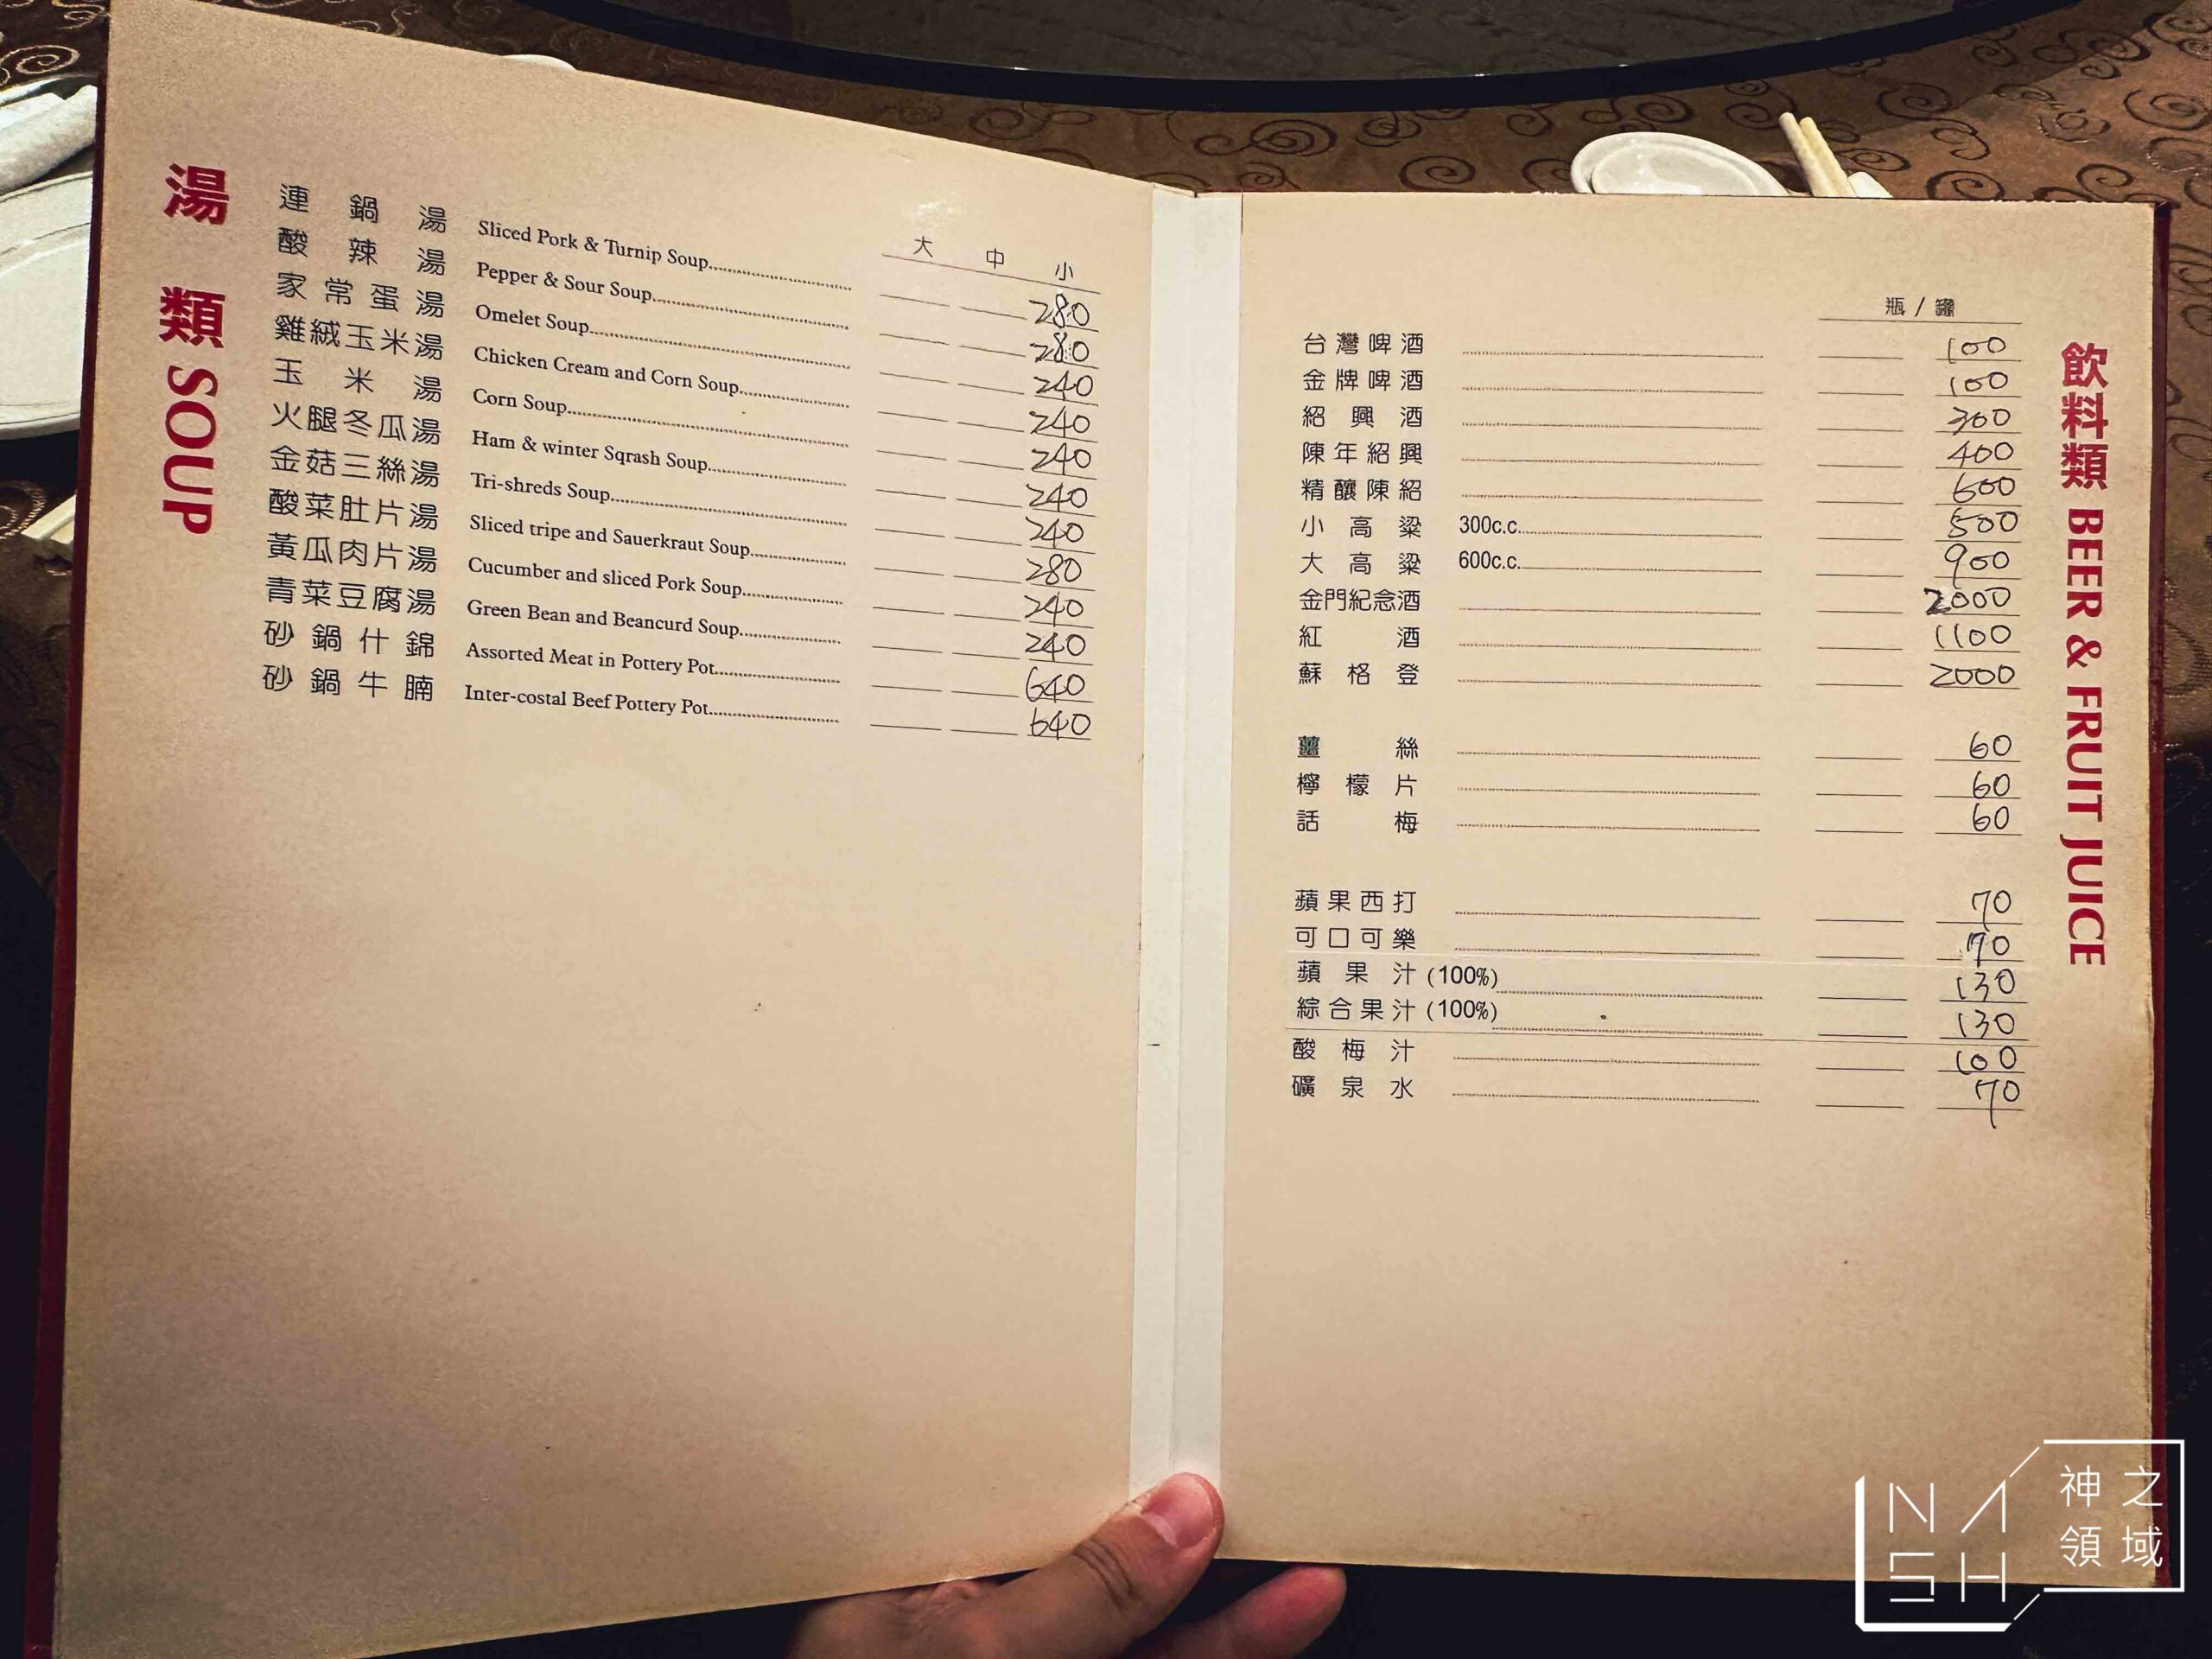 湯類 SOUP
大 中 小
連鍋湯 Sliced Pork & Turnip Soup 280
酸辣湯 Pepper & Sour Soup 280
家常蛋湯 Omelet Soup 240
雞絨玉米湯 Chicken Cream and Corn Soup 240
玉米湯 Corn Soup 240
火腿冬瓜湯 Ham & winter Sqrash Soup 240
金菇三絲湯 Tri-shreds Soup 240
酸菜肚片湯 Sliced tripe and Sauerkraut Soup 280
黃瓜肉片湯 Cucumber and sliced Pork Soup 240
青菜豆腐湯 Green Bean and Beancurd Soup 240
砂鍋什錦 Assorted Meat in Pottery Pot 640
砂鍋牛腩 Inter-costal Beef Pottery Pot 640
飲料類 BEER & FRUIT JUICE
瓶 / 罐
台灣啤酒 100
金牌啤酒 100
紹興酒 300
陳年紹興 400
精釀陳紹 600
小高粱 300c.c. 500
大高粱 600c.c. 900
金門紀念酒 2000
紅酒 1100
蘇格登 2000
薑絲 60
檸檬片 60
話梅 60
蘋果西打 70
可口可樂 70
蘋果汁 (100%) 130
綜合果汁 (100%) 130
酸梅汁 100
礦泉水 70
NASH
神之
領域